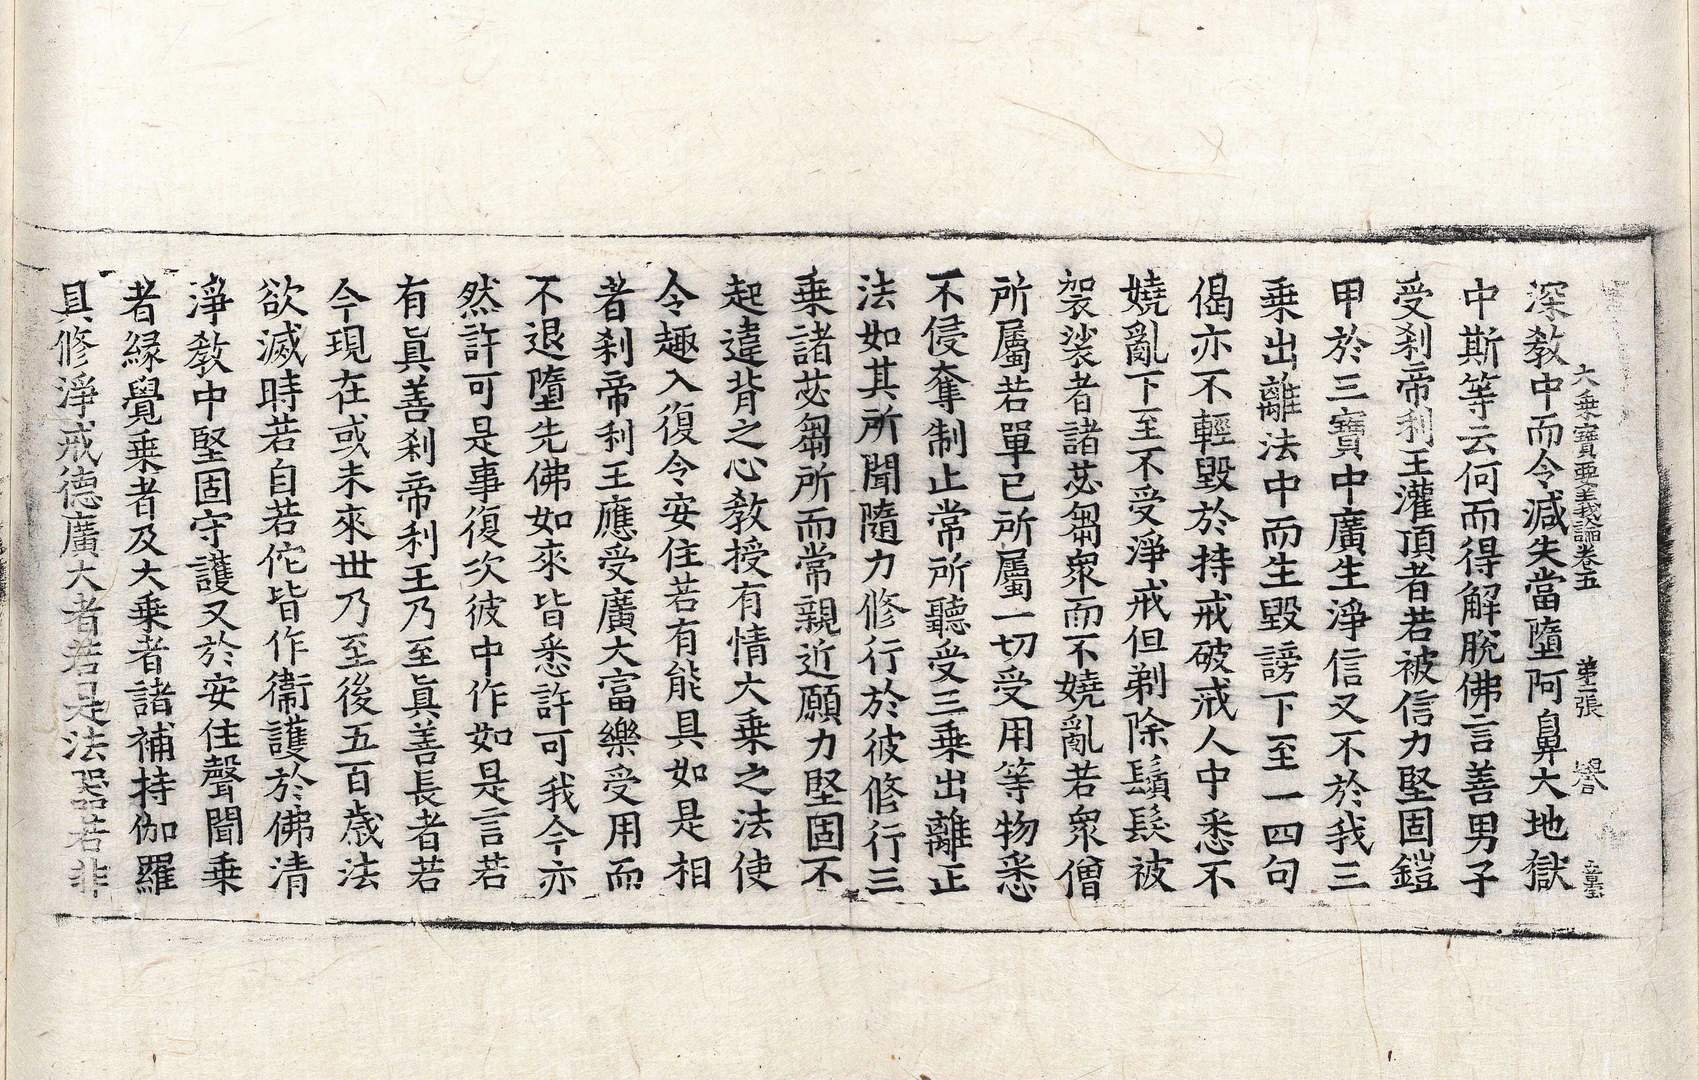 大乗寶要義論卷五 第二張 譽
深教中而令減失當墮阿鼻大地獄
中斯等云何而得解脫佛言善男子
受刹帝利王灌頂者若被信力堅固鎧
甲於三寶中廣生淨信又不於我三
乗出離法中而生毀謗下至一四句
偈亦不輕毀於持戒破戒人中悉不
嬈亂下至不受淨戒但剃除鬚髮被
袈裟者諸苾芻衆而不嬈亂若衆僧
所屬若單已所屬一切受用等物悉
不侵奪制止常所聽受三乗出離正
法如其所聞隨力修行於彼修行三
乗諸苾芻所而常親近願力堅固不
起違背之心教授有情大乗之法使
令趣入復令安住若有能具如是相
者刹帝利王應受廣大富樂受用而
不退墮先佛如來皆悉許可我今亦
然許可是事復次彼中作如是言若
有眞善刹帝利王乃至眞善長者若
今現在或未來世乃至後五百歲法
欲滅時若自若佗皆作衞護於佛清
淨教中堅固守護又於安住聲聞乗
者緣覺乗者及大乗者諸補持伽羅
具修淨戒德廣大者若是法器若非